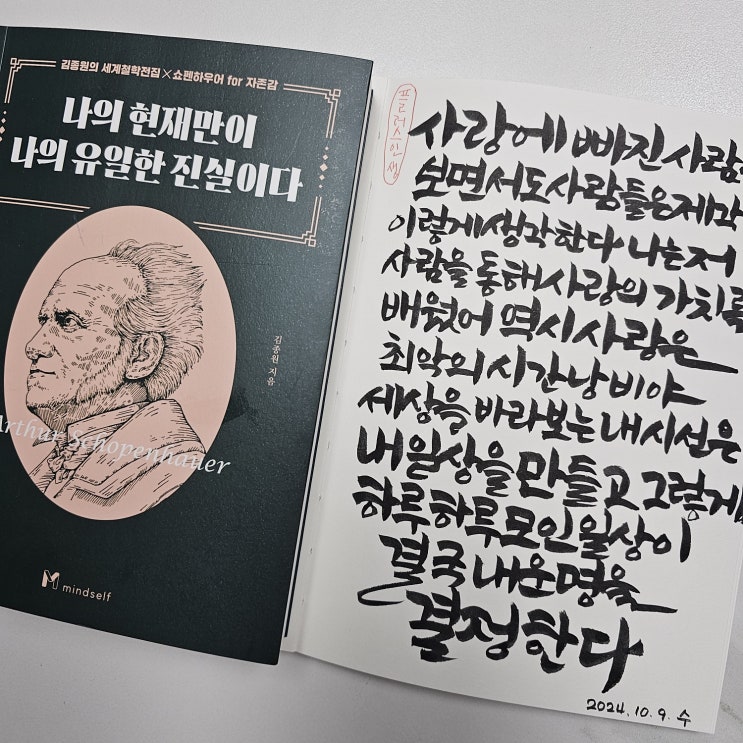 김종원의 세계철학전집×쇼펜하우어 for 자존감
나의 현재만이
나의 유일한 진실이다
김종원 지음
Arthur Schopenhauer
mindself
프로러스인생
사랑에 빠진 사람
보면서도 사람들은 제각
이렇게 생각한다 나는 저
사람을 통해 사랑의 가치를
배웠어 역시 사랑은
최악의 시간낭비야
세상을 바라보는 내 시선은
내 일상을 만들고 그렇게
하루하루 모인 일상이
결국 내 운명을
결정한다
2024. 10. 9. 수